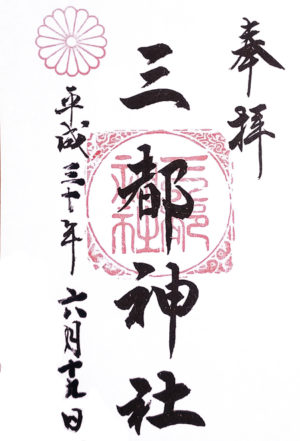 奉拝
三都神社
三都神社
平成三十年六月十九日